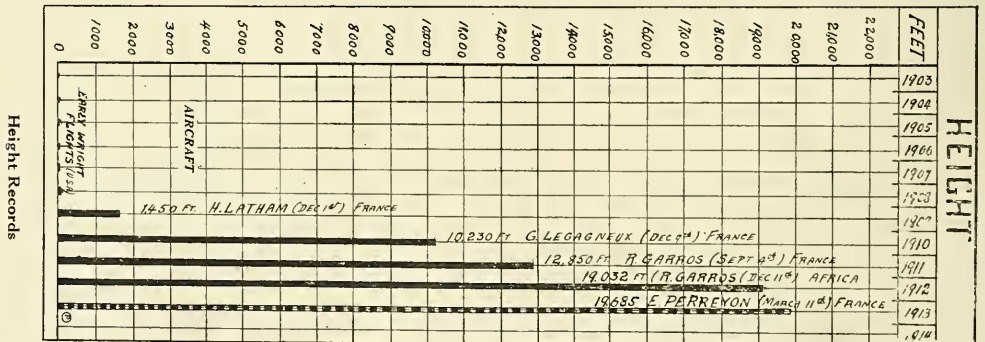 HEIGHT
FEET
22,000
21,000
20,000
19,000
18,000
17,000
16,000
15,000
14,000
13,000
12,000
11,000
10,000
9000
8000
7000
6000
5000
4000
3000
2000
1000
0
1903
1904
1905
1906
1907
1908
1909
1910
1911
1912
1913
1914
AIRCRAFT
EARLY WRIGHT
FLIGHTS (USA)
1450 FT. H. LATHAM (DEC 1st) FRANCE
10,230 FT G. LEGAGNEUX (DEC 9th) FRANCE
12,850 FT. R. GARROS (SEPT 4th) FRANCE
19,032 FT (R. GARROS (DEC 11th) AFRICA
19685 E. PERREYON (MARCH 11th) FRANCE
Height Records